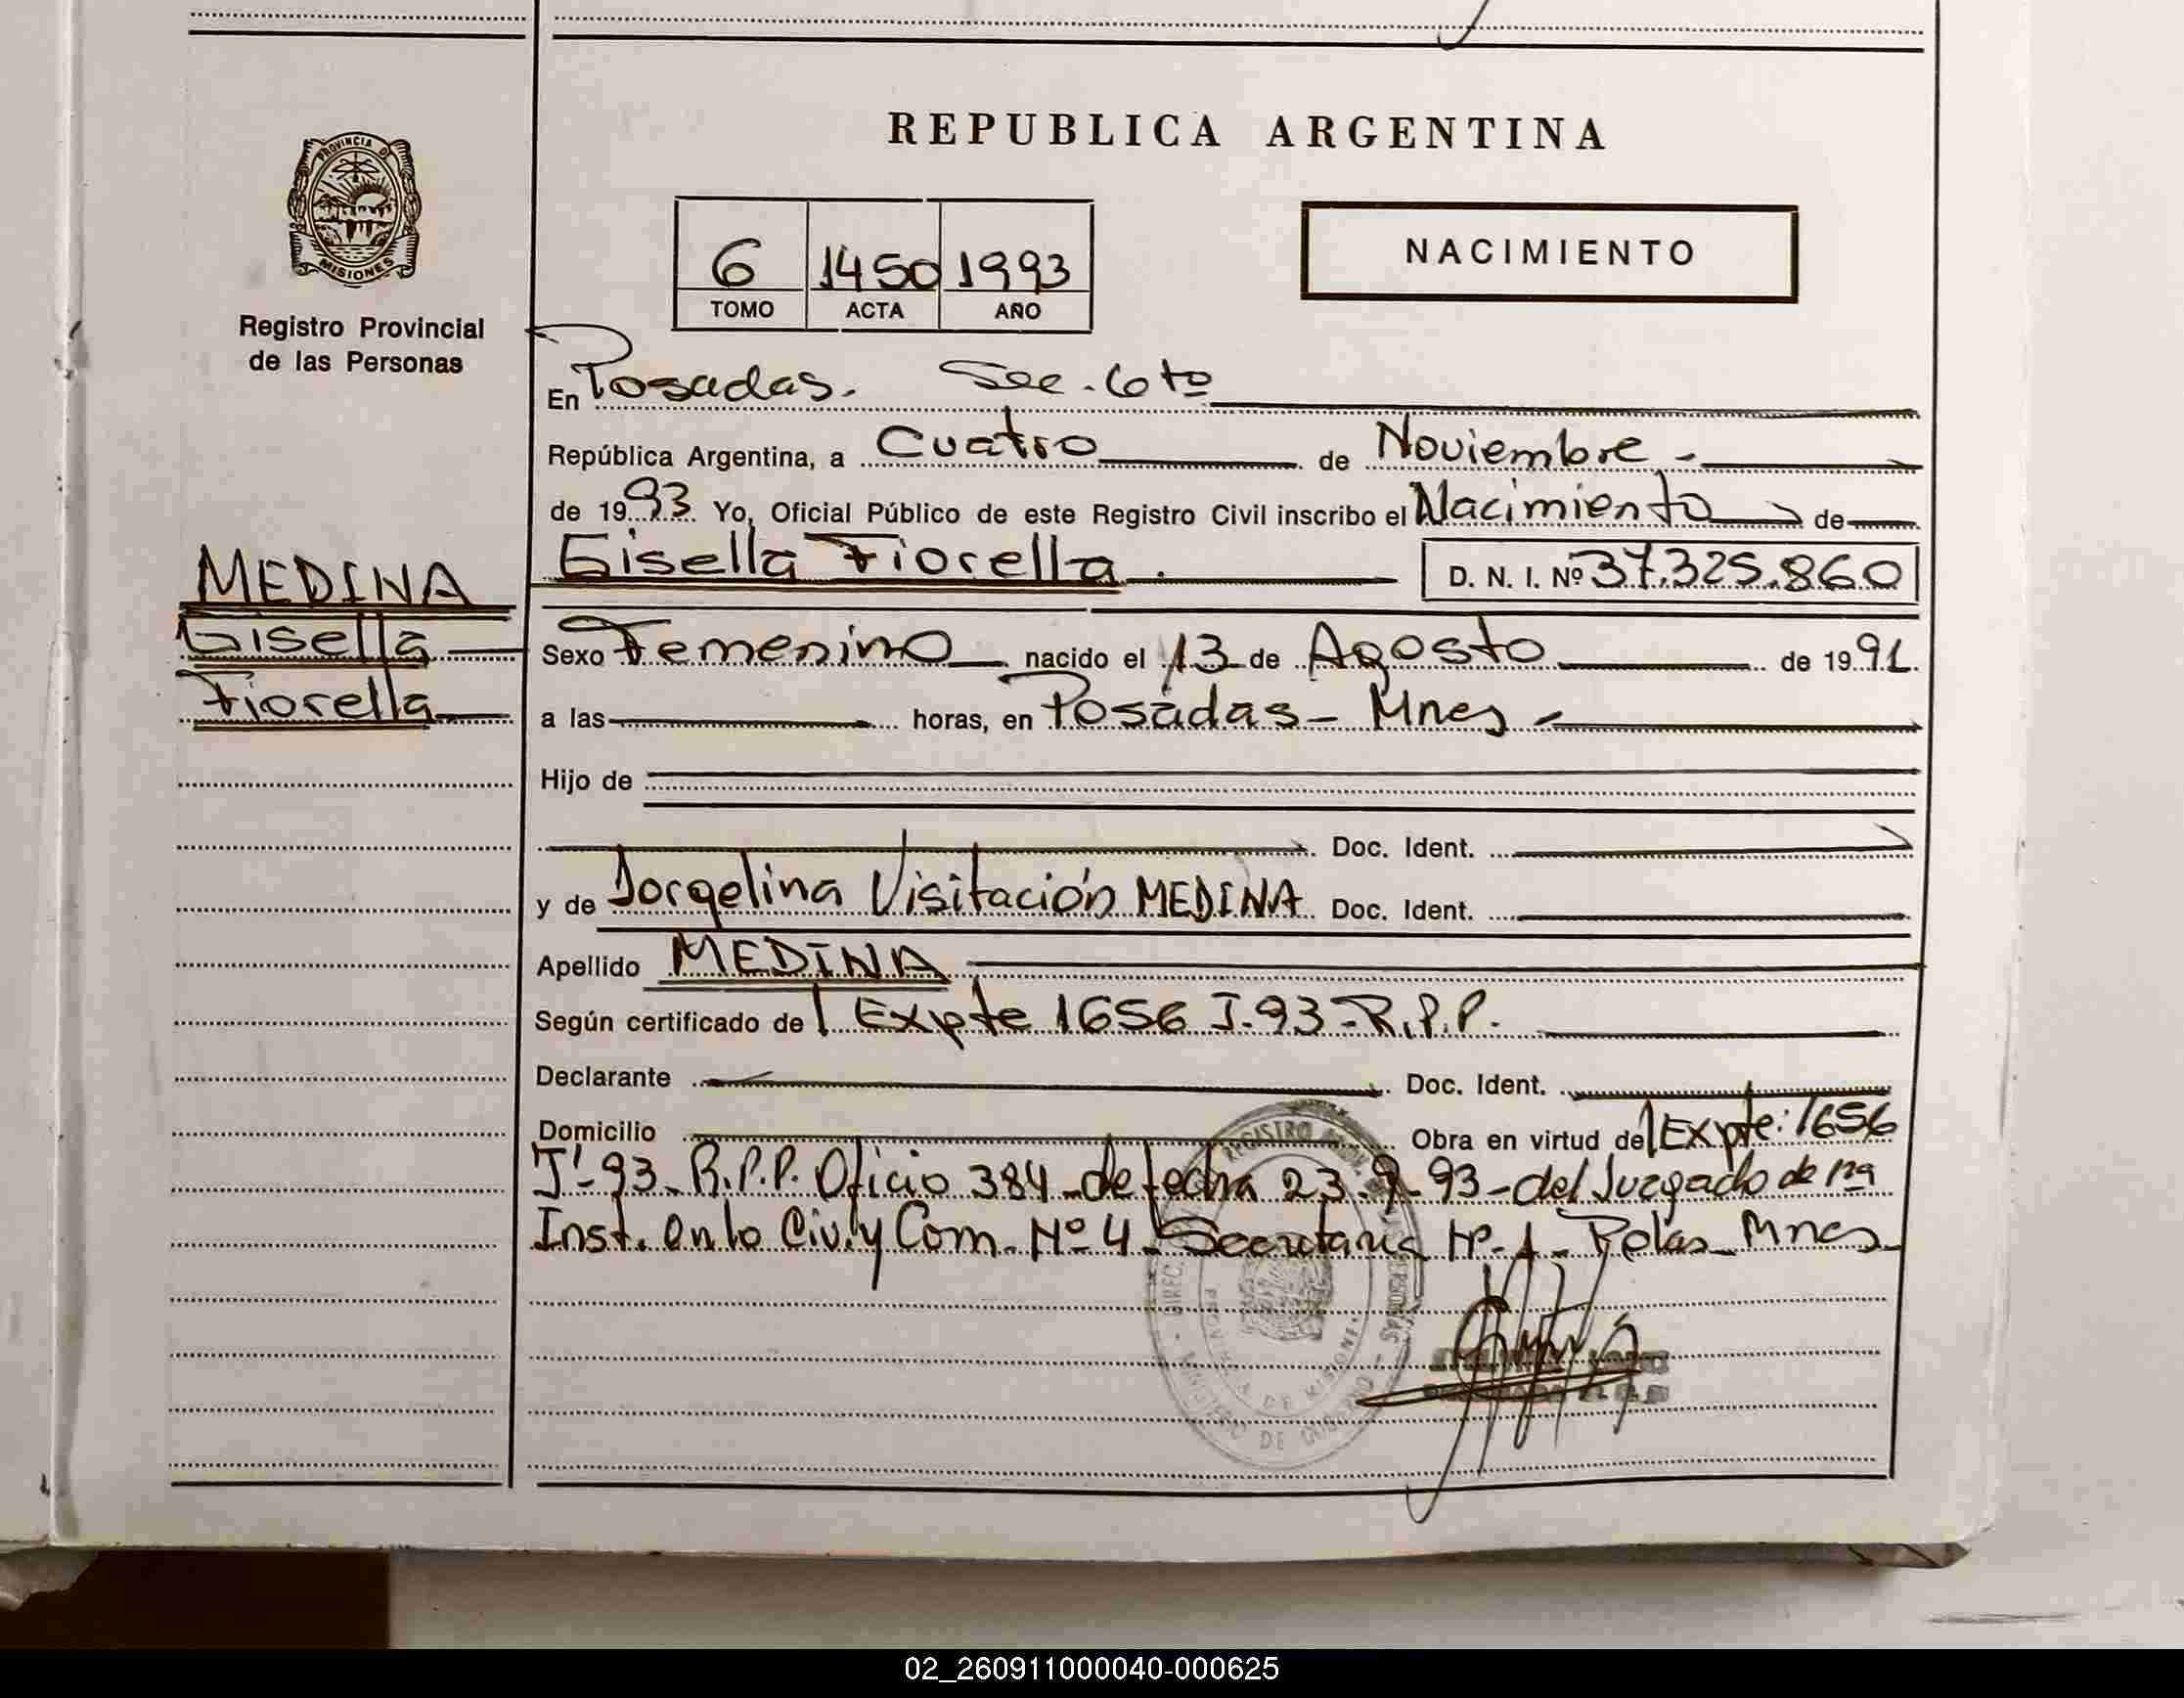 REPUBLICA ARGENTINA
PROVINCIA DE
MISIONES
Registro Provincial
de las Personas
6 1450 1993
TOMO ACTA AÑO
NACIMIENTO
En Posadas. Sec. 6to
República Argentina, a Cuatro de Noviembre.-
de 1993 Yo, Oficial Público de este Registro Civil inscribo el Nacimiento de
Gisella Fiorella. D. N. I. Nº 37.325.860
MEDINA
Gisella
Fiorella
Sexo Femenino nacido el 13 de Agosto de 1991.
a las horas, en Posadas- Mnes-
Hijo de
Doc. Ident.
y de Jorgelina Visitación MEDINA Doc. Ident.
Apellido MEDINA
Según certificado del Expte 1656 J-93-R.P.P.
Declarante Doc. Ident.
Domicilio Obra en virtud del Expte: 1656
J-93-R.P.P. Oficio 384-de fecha 23-9-93-del Juzgado de 1ra
Inst. en lo Civ. y Com. Nº 4-Secretaria Nº-1- Mnes-
PROVINCIA DE MISIONES
02_260911000040-000625